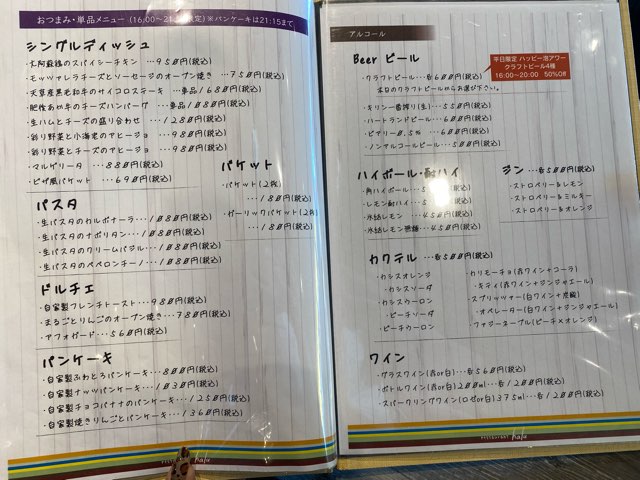 おつまみ・単品メニュー (16:00〜21:
定) ※パンケーキは21:15まで
シングルディッシュ
・大阿蘇鶏のスパイシーチキン …950円(税込)
・モッツァレラチーズとソーセージのオープン焼き …750円(税込)
・天草産黒毛和牛のサイコロステーキ …単品1680円(税込)
・肥後あか牛のチーズハンバーグ …単品1080円(税込)
・生ハムとチーズの盛り合わせ …1280円(税込)
・彩り野菜と小海老のアヒージョ …980円(税込)
・彩り野菜とチーズのアヒージョ …980円(税込)
・マルゲリータ …880円(税込)
・ピザ風バケット …690円(税込)
バケット
・バケット(2枚)
…180円(税込)
・ガーリックバケット(2枚)
…180円(税込)
パスタ
・生パスタのカルボナーラ…1080円(税込)
・生パスタのナポリタン…1080円(税込)
・生パスタのクリームバジル…1080円(税込)
・生パスタのペペロンチーノ…1080円(税込)
ドルチェ
・自家製フレンチトースト…980円(税込)
・まるごとりんごのオーブン焼き…780円(税込)
・アフォガード…560円(税込)
パンケーキ
・自家製ふわとろパンケーキ…800円(税込)
・自家製ナッツパンケーキ…1030円(税込)
・自家製チョコバナナのパンケーキ…1250円(税込)
・自家製焼きりんごとパンケーキ…1360円(税込)
アルコール
Beer ビール
・クラフトビール…各600円(税込)
下記のクラフトビールからお選び下さい。
平日限定 ハッピー泡アワー
クラフトビール4種
16:00〜20:00 50%Off
・キリン一番搾り(生)…550円(税込)
・ハートランドビール…600円(税込)
・ビアリー0.5% …600円(税込)
・ノンアルコールビール…500円(税込)
ハイボール・酎ハイ
・角ハイボール…5
(税込)
・レモン酎ハイ…5
(税込)
・氷結レモン …450円(税込)
・氷結レモン無糖…450円(税込)
ジン…各500円(税込)
・ストロベリー&レモン
・ストロベリー&ミルキー
・ストロベリー&オレンジ
カクテル …各500円(税込)
・カシスオレンジ
・カシスソーダ
・カシスウーロン
・ピーチソーダ
・ピーチウーロン
・カリモーチョ(赤ワイン+コーラ)
・キティ(赤ワイン+ジンジャエール)
・スプリッツァー(白ワイン+炭酸)
・オペレーター(白ワイン+ジンジャエール)
・ファジーネーブル(ピーチ×オレンジ)
ワイン
・グラスワイン(赤or白)…各560円(税込)
・ボトルワイン(赤or白)200ml…各1200円(税込)
・スパークリングワイン(ロゼor白)375ml…各1200円(税込)
RESTAURANT halu